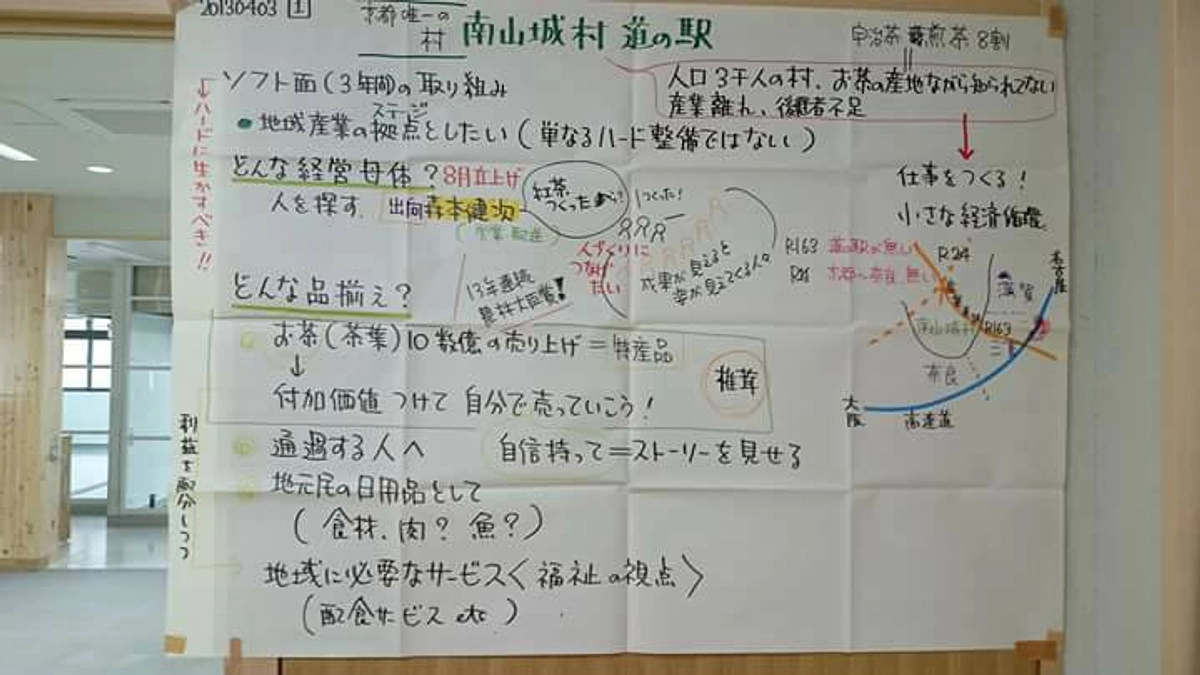 20130403 1
京都唯一の村
南山城村 道の駅
宇治茶 煎茶 8割
人口3千人の村、お茶の産地ながら知られてない
産業離れ、後継者不足
↓
仕事をつくる!
小さな経済循環
ソフト面(3年間)の取り組み
↓ハードに生かすべき!!
ステージ
●地域産業の拠点としたい(単なるハード整備ではない)
どんな経営母体? 8月立上げ
人を探す 出向 森本健次
紅茶つくったよ
つくった!
RRR
人づくりにつなげたい
成果が見えると
姿が見えてくる人々
13年連続
農林大臣賞!
R163 道の駅が無い
R24 無い
R24
滋賀
名古屋
南山城村
R163
三
奈良
大阪
高速道
どんな品揃え?
お茶(茶葉)10数億の売り上げ=特産品
↓
椎茸
付加価値つけて 自分で売っていこう!
通過する人へ 自信持って=ストーリーを見せる
地元民の日用品として
(食材、肉? 魚?)
地域に必要なサービス〈福祉の視点〉
(配食サービス etc)
利益を配分しつつ